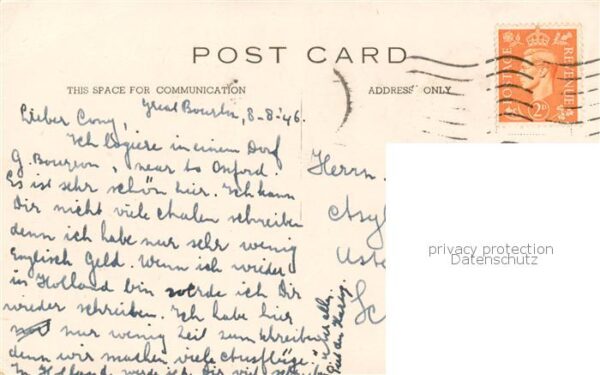 POST CARD
THIS SPACE FOR COMMUNICATION
ADDRESS ONLY
POSTAGE
REVENUE
2D
Great Bourton, 8-8-'46.
Lieber Cony,
Ich logiere in einem Dorf
G. Bourton, near to Oxford.
Es ist sehr schön hier. Ich kann
Dir nicht viele schreiben
denn ich habe nur sehr wenig
Englisch Geld. Wenn ich wieder
in Holland bin werde ich Dir
wieder schreiben. Ich habe hier
nur wenig Zeit zum schreiben
denn wir machen viele Ausflüge.
In Holland werde ich Dir viel schreiben
über alles.
Herrn.
privacy protection
Datenschutz